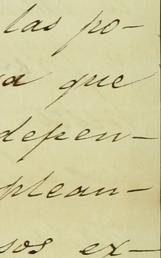 las po-
a que
depen-
plean-
sos ex-